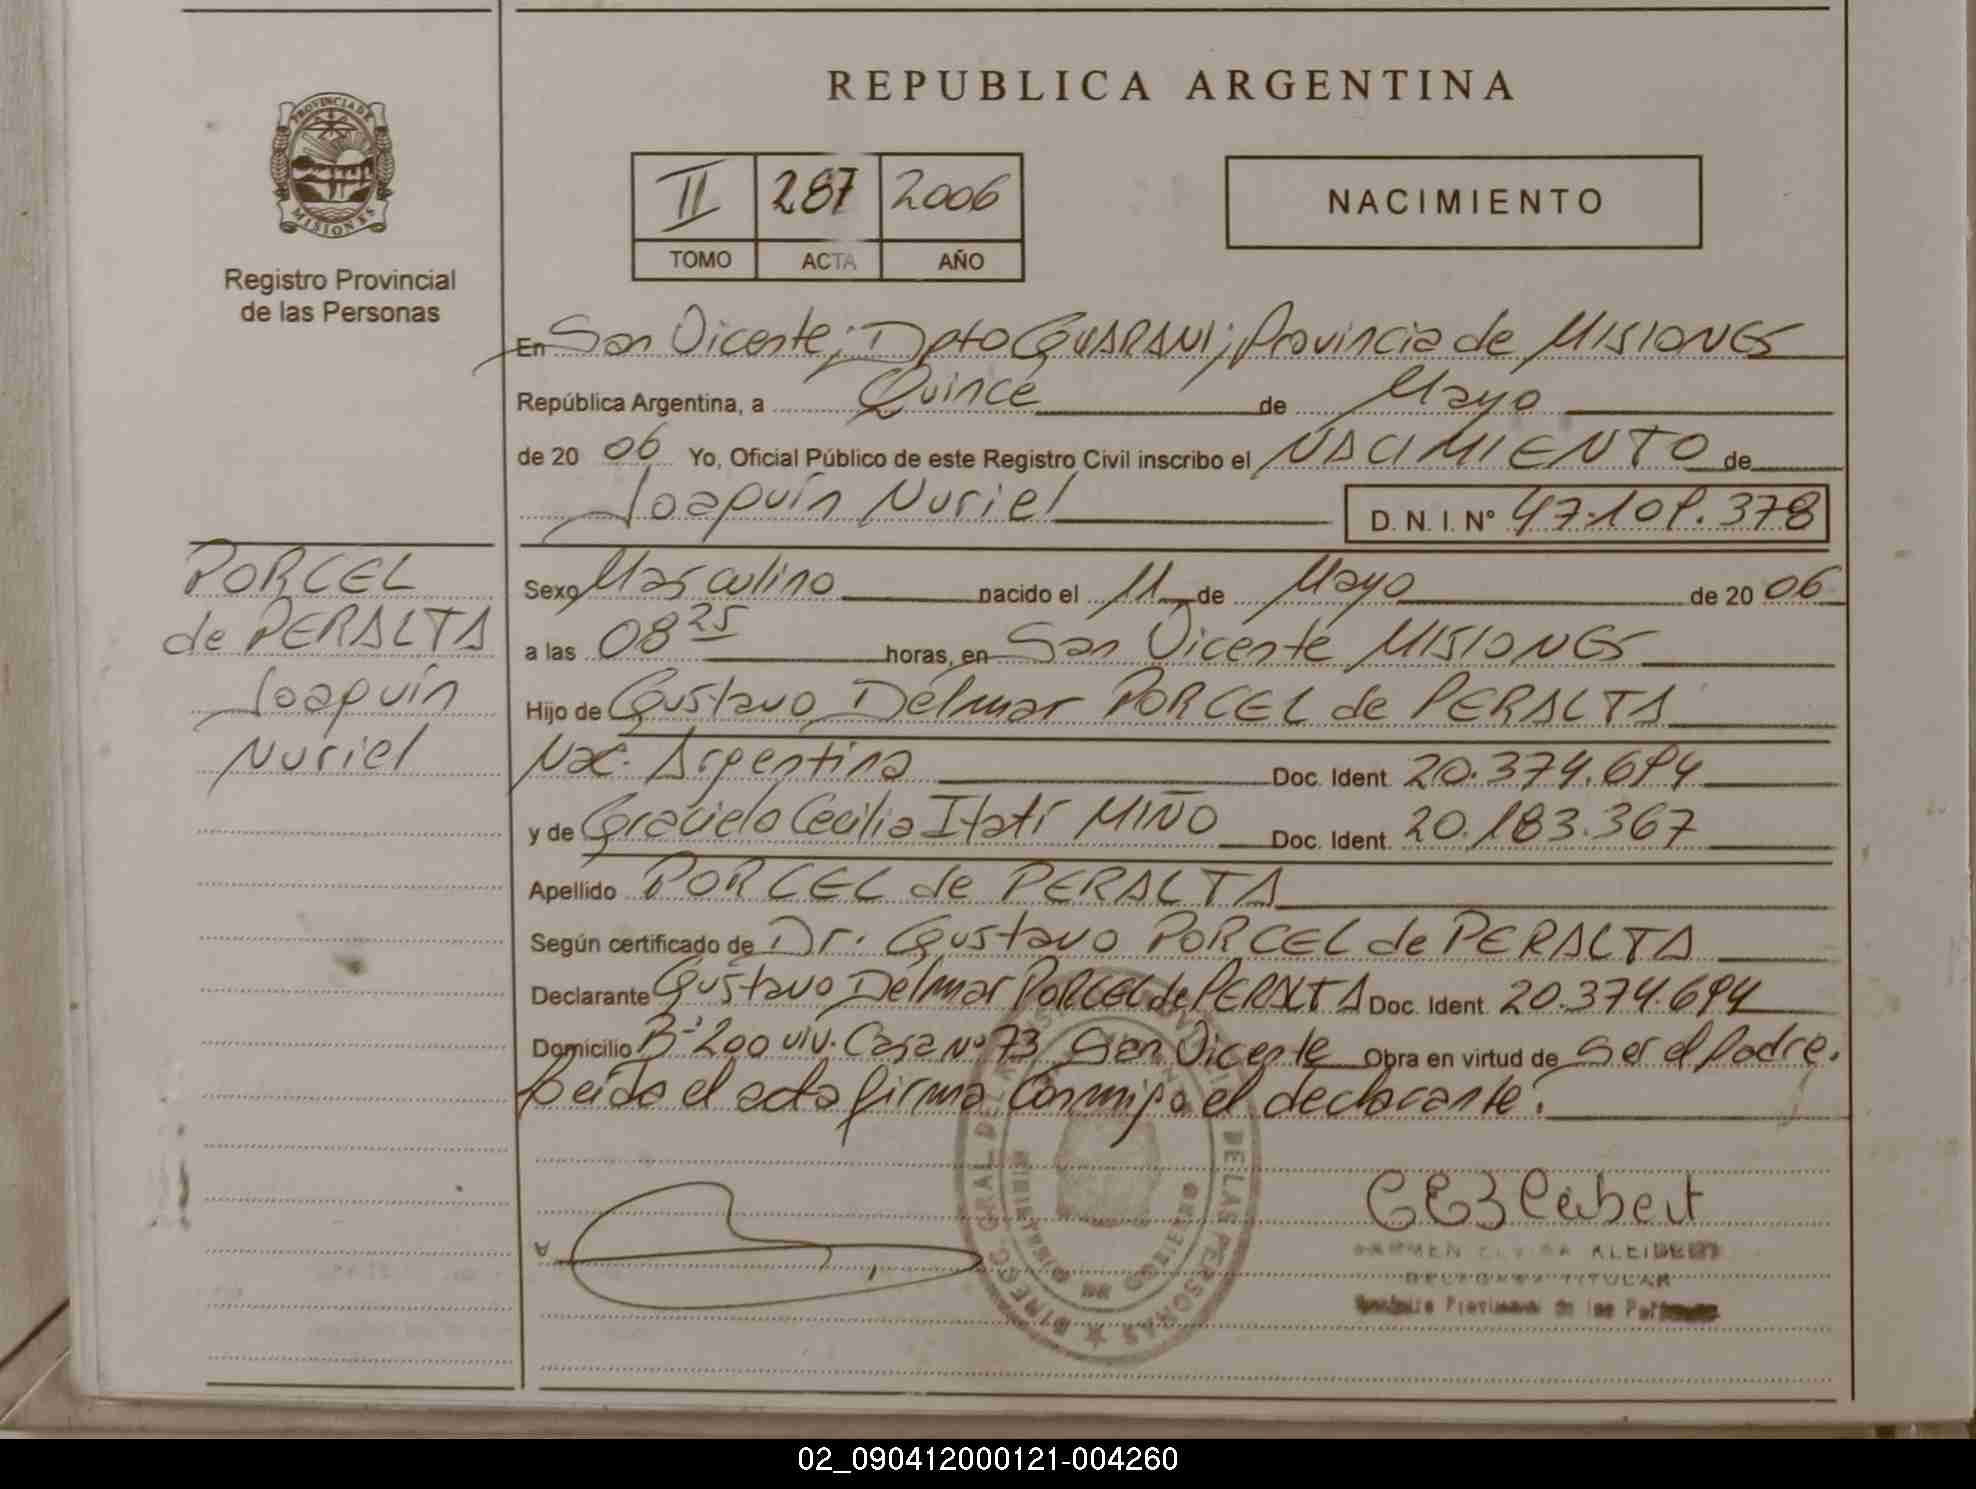 REPUBLICA ARGENTINA
PROVINCIA DE
MISIONES
Registro Provincial
de las Personas
II 287 2006
TOMO ACTA AÑO
NACIMIENTO
En San Vicente; Dpto GUARANI; Provincia de MISIONES
República Argentina, a Quince de Mayo
de 20 06 Yo, Oficial Público de este Registro Civil inscribo el NACIMIENTO de
Joaquín Nuriel D. N. I. N° 47.109.378
PORCEL
de PERALTA
Joaquín
Nuriel
Sexo Masculino nacido el 11 de Mayo de 20 06
a las 08 25 horas, en San Vicente MISIONES
Hijo de Gustavo Delmar PORCEL de PERALTA
Nac. Argentina Doc. Ident. 20.374.694
y de Graciela Cecilia Itatí MIÑO Doc. Ident. 20.183.367
Apellido PORCEL de PERALTA
Según certificado de Dr. Gustavo PORCEL de PERALTA
Declarante Gustavo Delmar PORCEL de PERALTA Doc. Ident. 20.374.694
Domicilio B° 200 viv. Casa N° 73 San Vicente Obra en virtud de ser el Padre.
Leída el acta firma conmigo el declarante.
DIREC. GRAL. DEL DE LAS PERSONAS
DE GOBIERNO
CARMEN ELVIRA KLEIBERT
DELEGADA TITULAR
Provincial de las
02_090412000121-004260